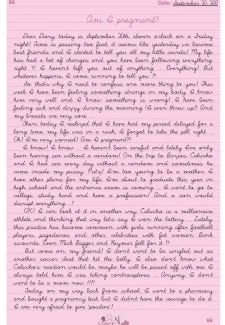 68
Date: September 30, 2012
Am I pregnant?
Dear Diary today is September 30th, eleven o'clock on a Friday
night! Time is passing too fast, it seems like yesterday we became
best friends and I started to tell you all my little secrets! My life
has had a lot of changes and you have been following everything,
right?! I haven't left you out of anything... Everything! But
whatever happens, I come running to tell you!!
So that's why I need to confess one more thing to you! This
week I have been feeling something strange in my body. I know
him very well and I know something is wrong! I have been
feeling sick and dizzy during the morning. I even threw up! And
my breasts are very sore...
Then today I realized that I have had my period delayed for a
long time, my life was in a rush, I forgot to take the pill right...
OK! I am very worried! Am I pregnant?!
I know! I know... I haven't been careful and lately I've only
been having sex without a condom! On the trip to
and I had sex every day without a condom and sometimes he
came inside my pussy! Fuck! I'm too young to be a mother. I
have other plans for my life. I'm about to graduate this year in
high school and the entrance exam is coming... I want to go to
college, study hard and have a profession! And a son would
disrupt everything...
OK! I can look at it in another way.
athlete and thinking that way, let's say I won the lottery... Lately
this practice has become common, with girls running after football
players, pagodeiros and other celebrities with fat
accounts. Even Mick Jagger and
But come on, my friend! I don't want to be singled out as
another soccer slut that hit the belly. I also don't know what
reaction would be, maybe he will be pissed off with me. I
always told him I was taking contraceptives... Anyway, I don't
want to be a mom now!!!!
Today on my way back from school, I went to a pharmacy
and bought a pregnancy test but I didn't have the courage to do it.
I am very afraid to give positive!!
68